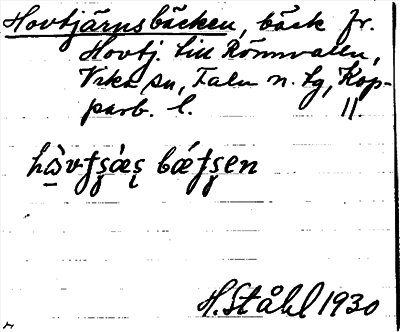 Hovtjärnsbäcken, bäck fr.
Hovtj. till Rönnvallen,
Vika sn, Falu n. tg, Kop-
parb. l. 11.
bǽ
H. Ståhl 1930